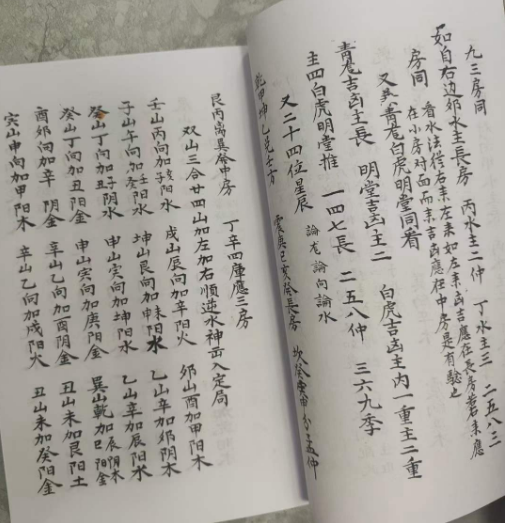 九三房同 丙水主二仲 丁水主三 二五八三
如自右边邜水主長房
看水法從右來左來如左來凶吉應在長房若來應
在小房对面而來吉凶應在中房是有驗之
房同 又无青龙白虎明堂同看
青龙吉凶主長 明堂吉凶主二 白虎吉凶主内一重主二重
主四白虎明堂推 一四七長 二五八仲 三六九季
又二十四位星辰 論龙論向論水
乾甲坤乙
震庚巳亥癸長房
艮丙 中房 丁辛四庫應三房
双山三合廿四山加左加右順逆水神击入定局
壬山丙向加 陽水 戌山辰向加辛阳火 邜山酉加甲阳木
子山午向加 陰水 坤山艮向加 水 乙山辛加邜阴木
癸山丁向加 阴水 申山寅向加坤阳水 乙山辛加辰阳水
癸山丁向加丑阳金 申山寅向加庚阳金 巽山乾加
酉邜向加辛阴金 辛山乙向加酉阴金 丑山未加艮阳土
寅山申向加甲阳木 辛山乙向加戍阳火 丑山未加癸阳金